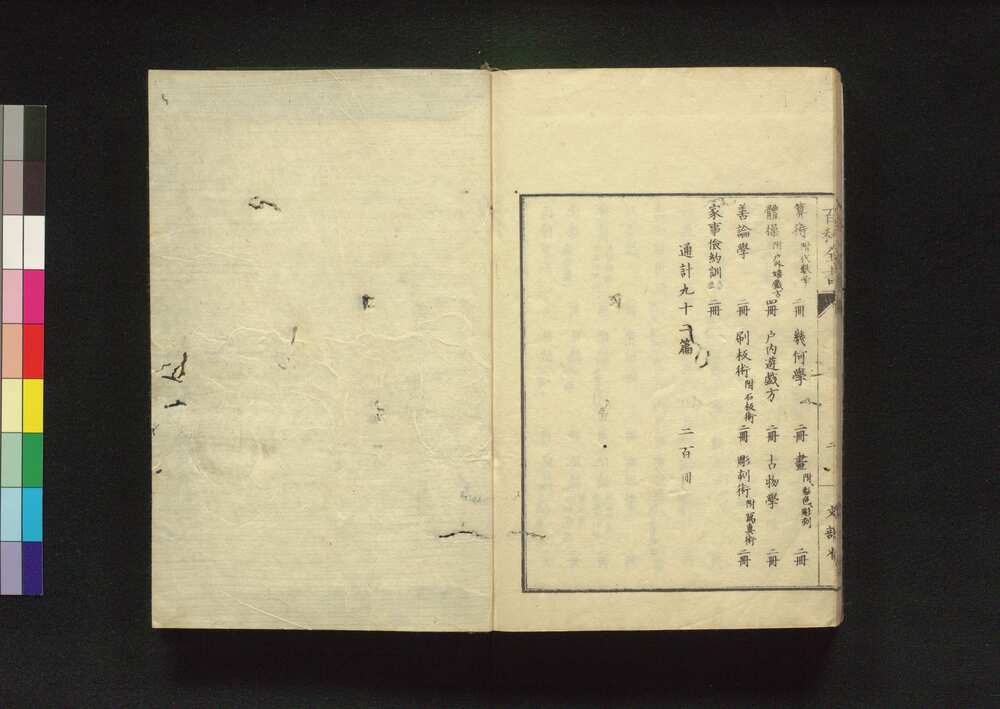 百科全書
二
文部省
算術 附代數學 二冊 幾何學 二冊 畫 附著色彫刻 二冊
體操 附戸外嬉戲方 四冊 戸内遊戲方 二冊 古物學 二冊
善論學 二冊 刷板術 附石板術 二冊 彫刻術 附寫真術 二冊
家事倹約訓 二冊
通計九十二篇 二百冊